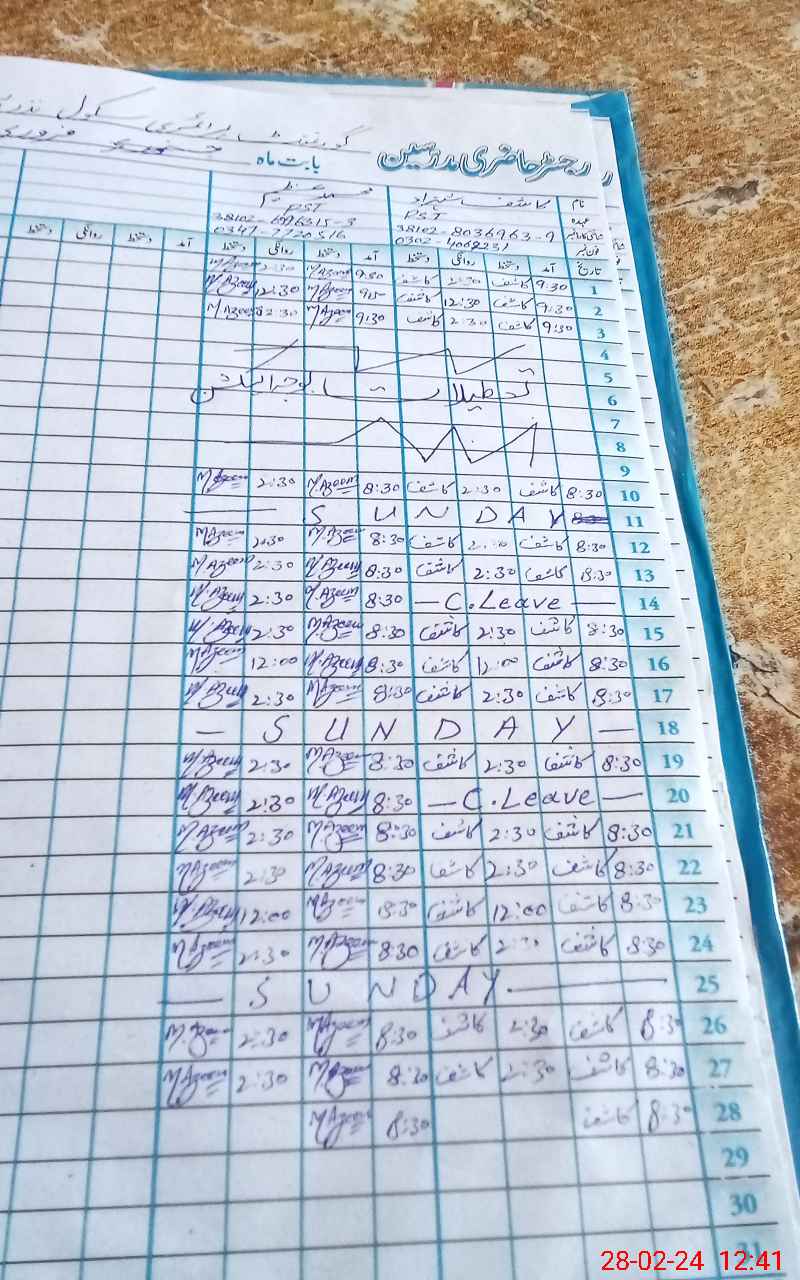 گورنمنٹ پرائمری سکول
رجسٹر حاضری مدرسین بابت ماہ فروری
نام کاشف شہزاد محمد عظیم
عہدہ PST PST
شناختی کارڈ نمبر 38102-8036963-9
فون نمبر 0302-4068231
تاریخ آمد دستخط روانگی دستخط آمد دستخط روانگی دستخط آمد دستخط روانگی دستخط
1 9:30 کاشف 2:30 کاشف 9:30 M.Azeem 2:30 M.Azeem
2 9:30 کاشف 12:30 کاشف 9:15 M.Azeem 12:30 M.Azeem
3 9:30 کاشف 2:30 کاشف 9:30 M.Azeem 2:30 M.Azeem
4
5
6 تعطیلات بوجہ الیکشن
7
8
9
10 8:30 کاشف 2:30 کاشف 8:30 M.Azeem 2:30 M.Azeem
11 SUNDAY
12 8:30 کاشف 2:30 کاشف 8:30 M.Azeem 2:30 M.Azeem
13 8:30 کاشف 2:30 کاشف 8:30 M.Azeem 2:30 M.Azeem
14 — C.Leave — 8:30 M.Azeem 2:30 M.Azeem
15 8:30 کاشف 2:30 کاشف 8:30 M.Azeem 2:30 M.Azeem
16 8:30 کاشف 12:00 کاشف 8:30 M.Azeem 12:00 M.Azeem
17 8:30 کاشف 2:30 کاشف 8:30 M.Azeem 2:30 M.Azeem
18 — SUNDAY —
19 8:30 کاشف 2:30 کاشف 8:30 M.Azeem 2:30 M.Azeem
20 — C.Leave — 8:30 M.Azeem 2:30 M.Azeem
21 8:30 کاشف 2:30 کاشف 8:30 M.Azeem 2:30 M.Azeem
22 8:30 کاشف 2:30 کاشف 8:30 M.Azeem 2:30 M.Azeem
23 8:30 کاشف 12:00 کاشف 8:30 M.Azeem 12:00 M.Azeem
24 8:30 کاشف 2:30 کاشف 8:30 M.Azeem 2:30 M.Azeem
25 — SUNDAY —
26 8:30 کاشف 2:30 کاشف 8:30 M.Azeem 2:30 M.Azeem
27 8:30 کاشف 2:30 کاشف 8:30 M.Azeem 2:30 M.Azeem
28 8:30 کاشف 8:30 M.Azeem
29
30
31
28-02-24 12:41